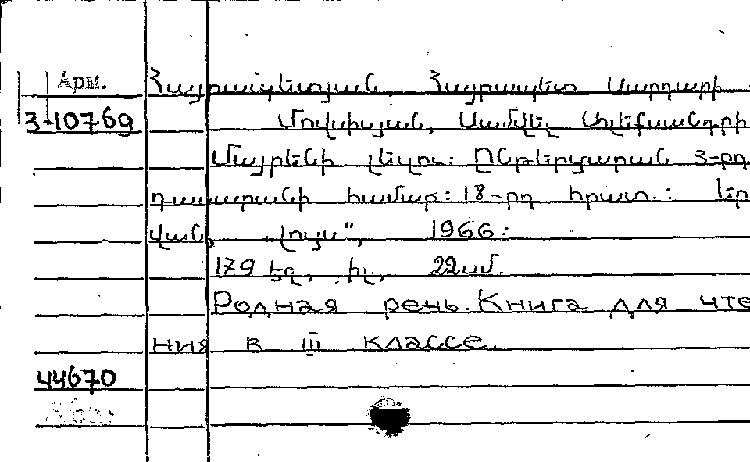 Арм. Հայրապետյան, Հայրապետ Սարդարի
3-10769 Մովսիսյան, Սամվել Ալեքսանդրի
Մայրենի լեզու: Ընթերցարան 3-րդ
դասարանի համար: 18-րդ հրատ.: Երև
վան, „Լույս", 1966:
179 էջ, իլ, 22սմ.
Родная речь. Книга для чте
ния в III классе.
44670